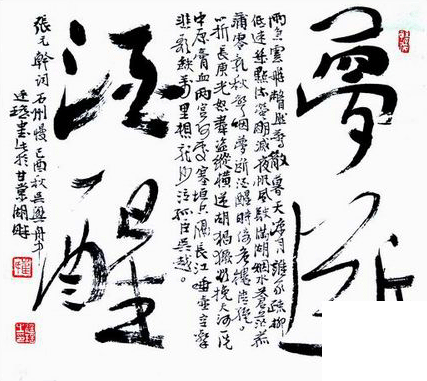 夢斷
雨急雲飛瞥然驚散暮天涼月誰家疏柳
低迷幾點流螢明滅夜帆風駛滿湖烟水蒼茫菰
蒲零亂秋聲咽夢斷酒醒時倚危檣清絕
心折長庚光怒羣盜縱橫逆胡猖獗欲挽天河一洗
中原膏血兩宮何處塞垣只隔長江唾壺空擊
悲歌缺萬里想龍沙泣孤臣吳越
酒醒
張元幹詞石州慢己酉秋吳興舟中
書於甘棠湖畔